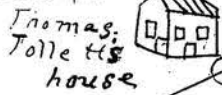 Thomas.
Tolletts
house